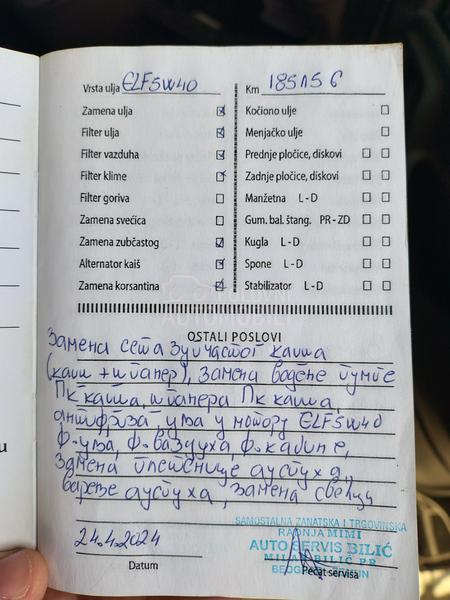 Vrsta ulja ELF 5W40 Km 185156
Zamena ulja Kočiono ulje
Filter ulja Menjačko ulje
Filter vazduha Prednje pločice, diskovi
Filter klime Zadnje pločice, diskovi
Filter goriva Manžetna L - D
Zamena svećica Gum. bal. štang. PR - ZD
Zamena zubčastog Kugla L - D
Alternator kaiš Spone L - D
Zamena korsantina Stabilizator L - D
OSTALI POSLOVI
Замена сета зупчастог каиша
(каиш + шпанер), замена водене пумпе
Пк каиша, шпанера Пк каиша
антифриза уља у мотору ELF 5W40
ф. уља, ф. ваздуха, ф. кабине,
Замена плетенице ауспуха,
варење ауспуха, замена свећица
24.4.2024
Datum
SAMOSTALNA ZANATSKA I TRGOVINSKA
RADNJA MIMI
AUTO SERVIS BILIĆ
MILAN BILIĆ PR
Pečat servisa
POLOVNI
AUTOMOBILI
u